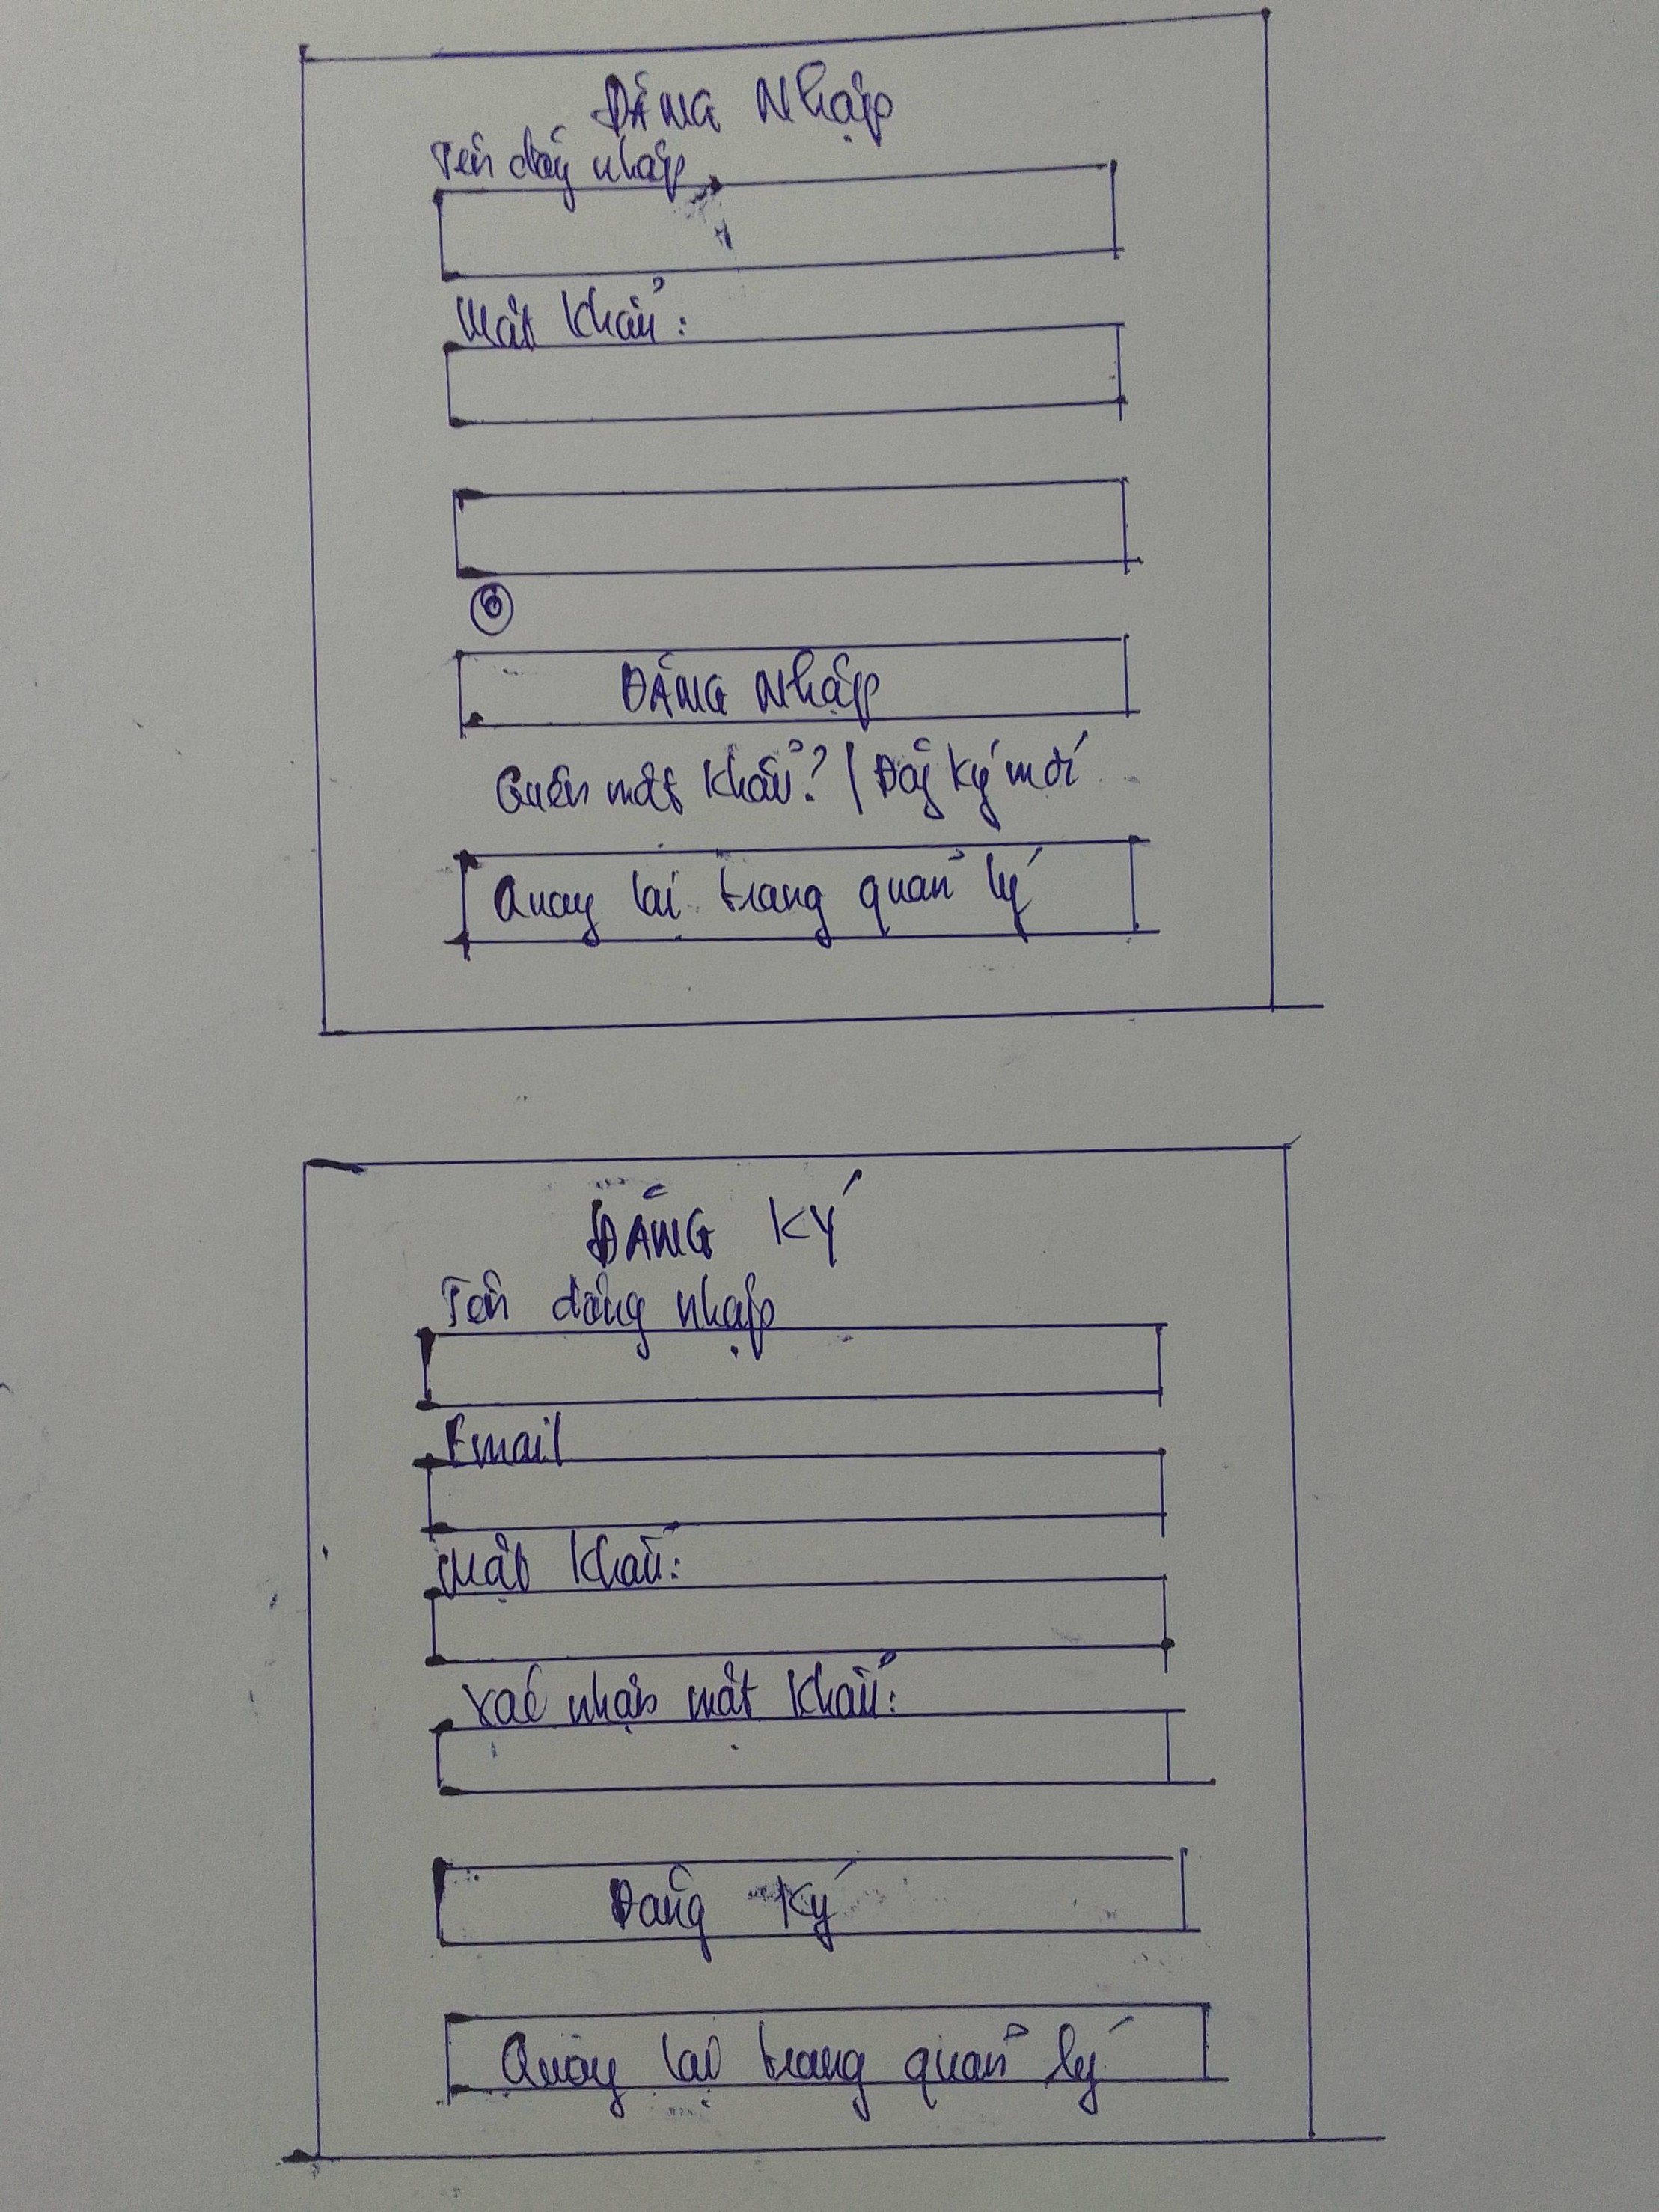 ĐĂNG Nhập
Tên đăng nhập
Mật khẩu:
ĐĂNG Nhập
Quên mật khẩu? | Đăng ký mới
Quay lại trang quản lý
ĐĂNG KÝ
Tên đăng nhập
Email
Mật khẩu:
Xác nhận mật khẩu:
Đăng Ký
Quay lại trang quản lý